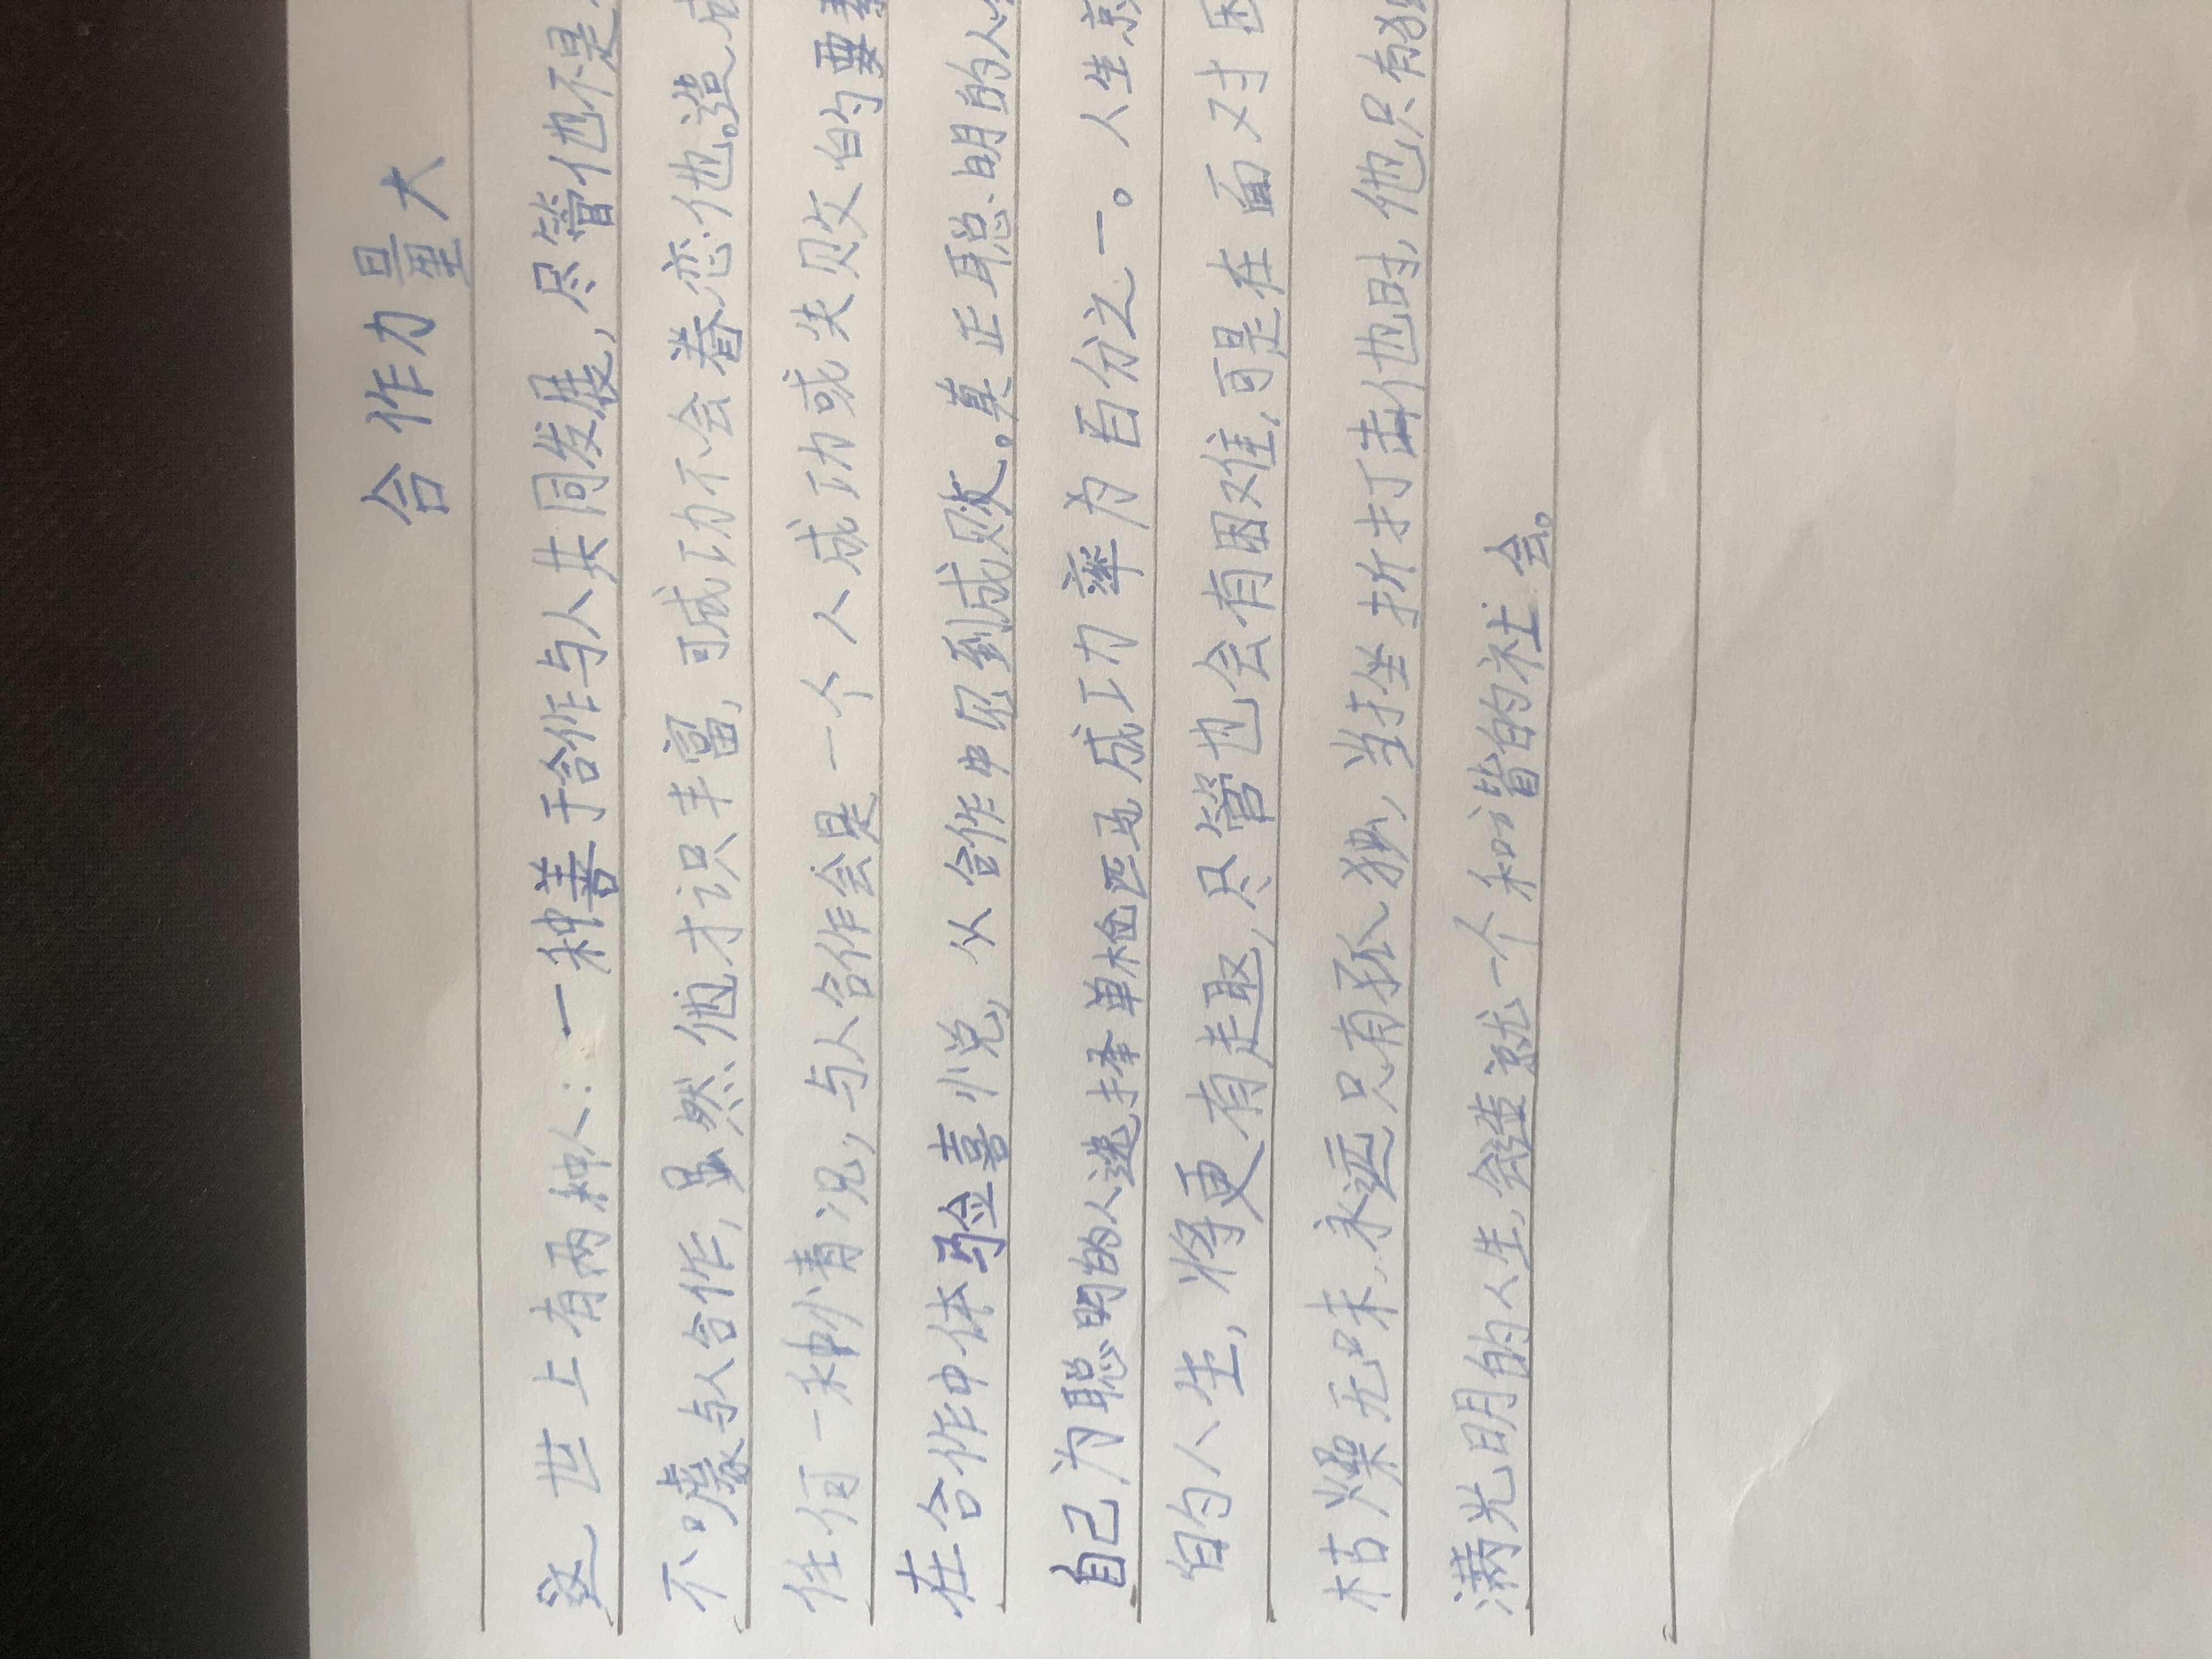 合作力量大
这世上有两种人：一种善于合作与人共同发展，尽管他不是
不喙与人合作，虽然他才识丰富，可成功不会眷恋他。造成
任何一种情况，与人合作会是一个人成功或失败的要素
在合作中体验喜悦，从合作中见到成败。真正聪明的人
自己为聪明的人选择单枪匹马成功率为百分之一。人生
的人生，将更有走趣，尽管也会有困难，可是在面对困
枯燥无味，永远只有孤独，当挫折打击他时，他只有
满光明的人生，会造就一个和谐的社会。